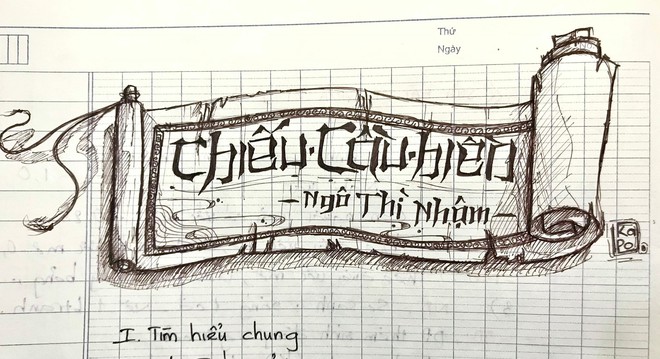 Thứ
Ngày
Chiếu·Cầu·hiền
-Ngô Thì Nhậm-
Ka
Po.
I. Tìm hiểu chung